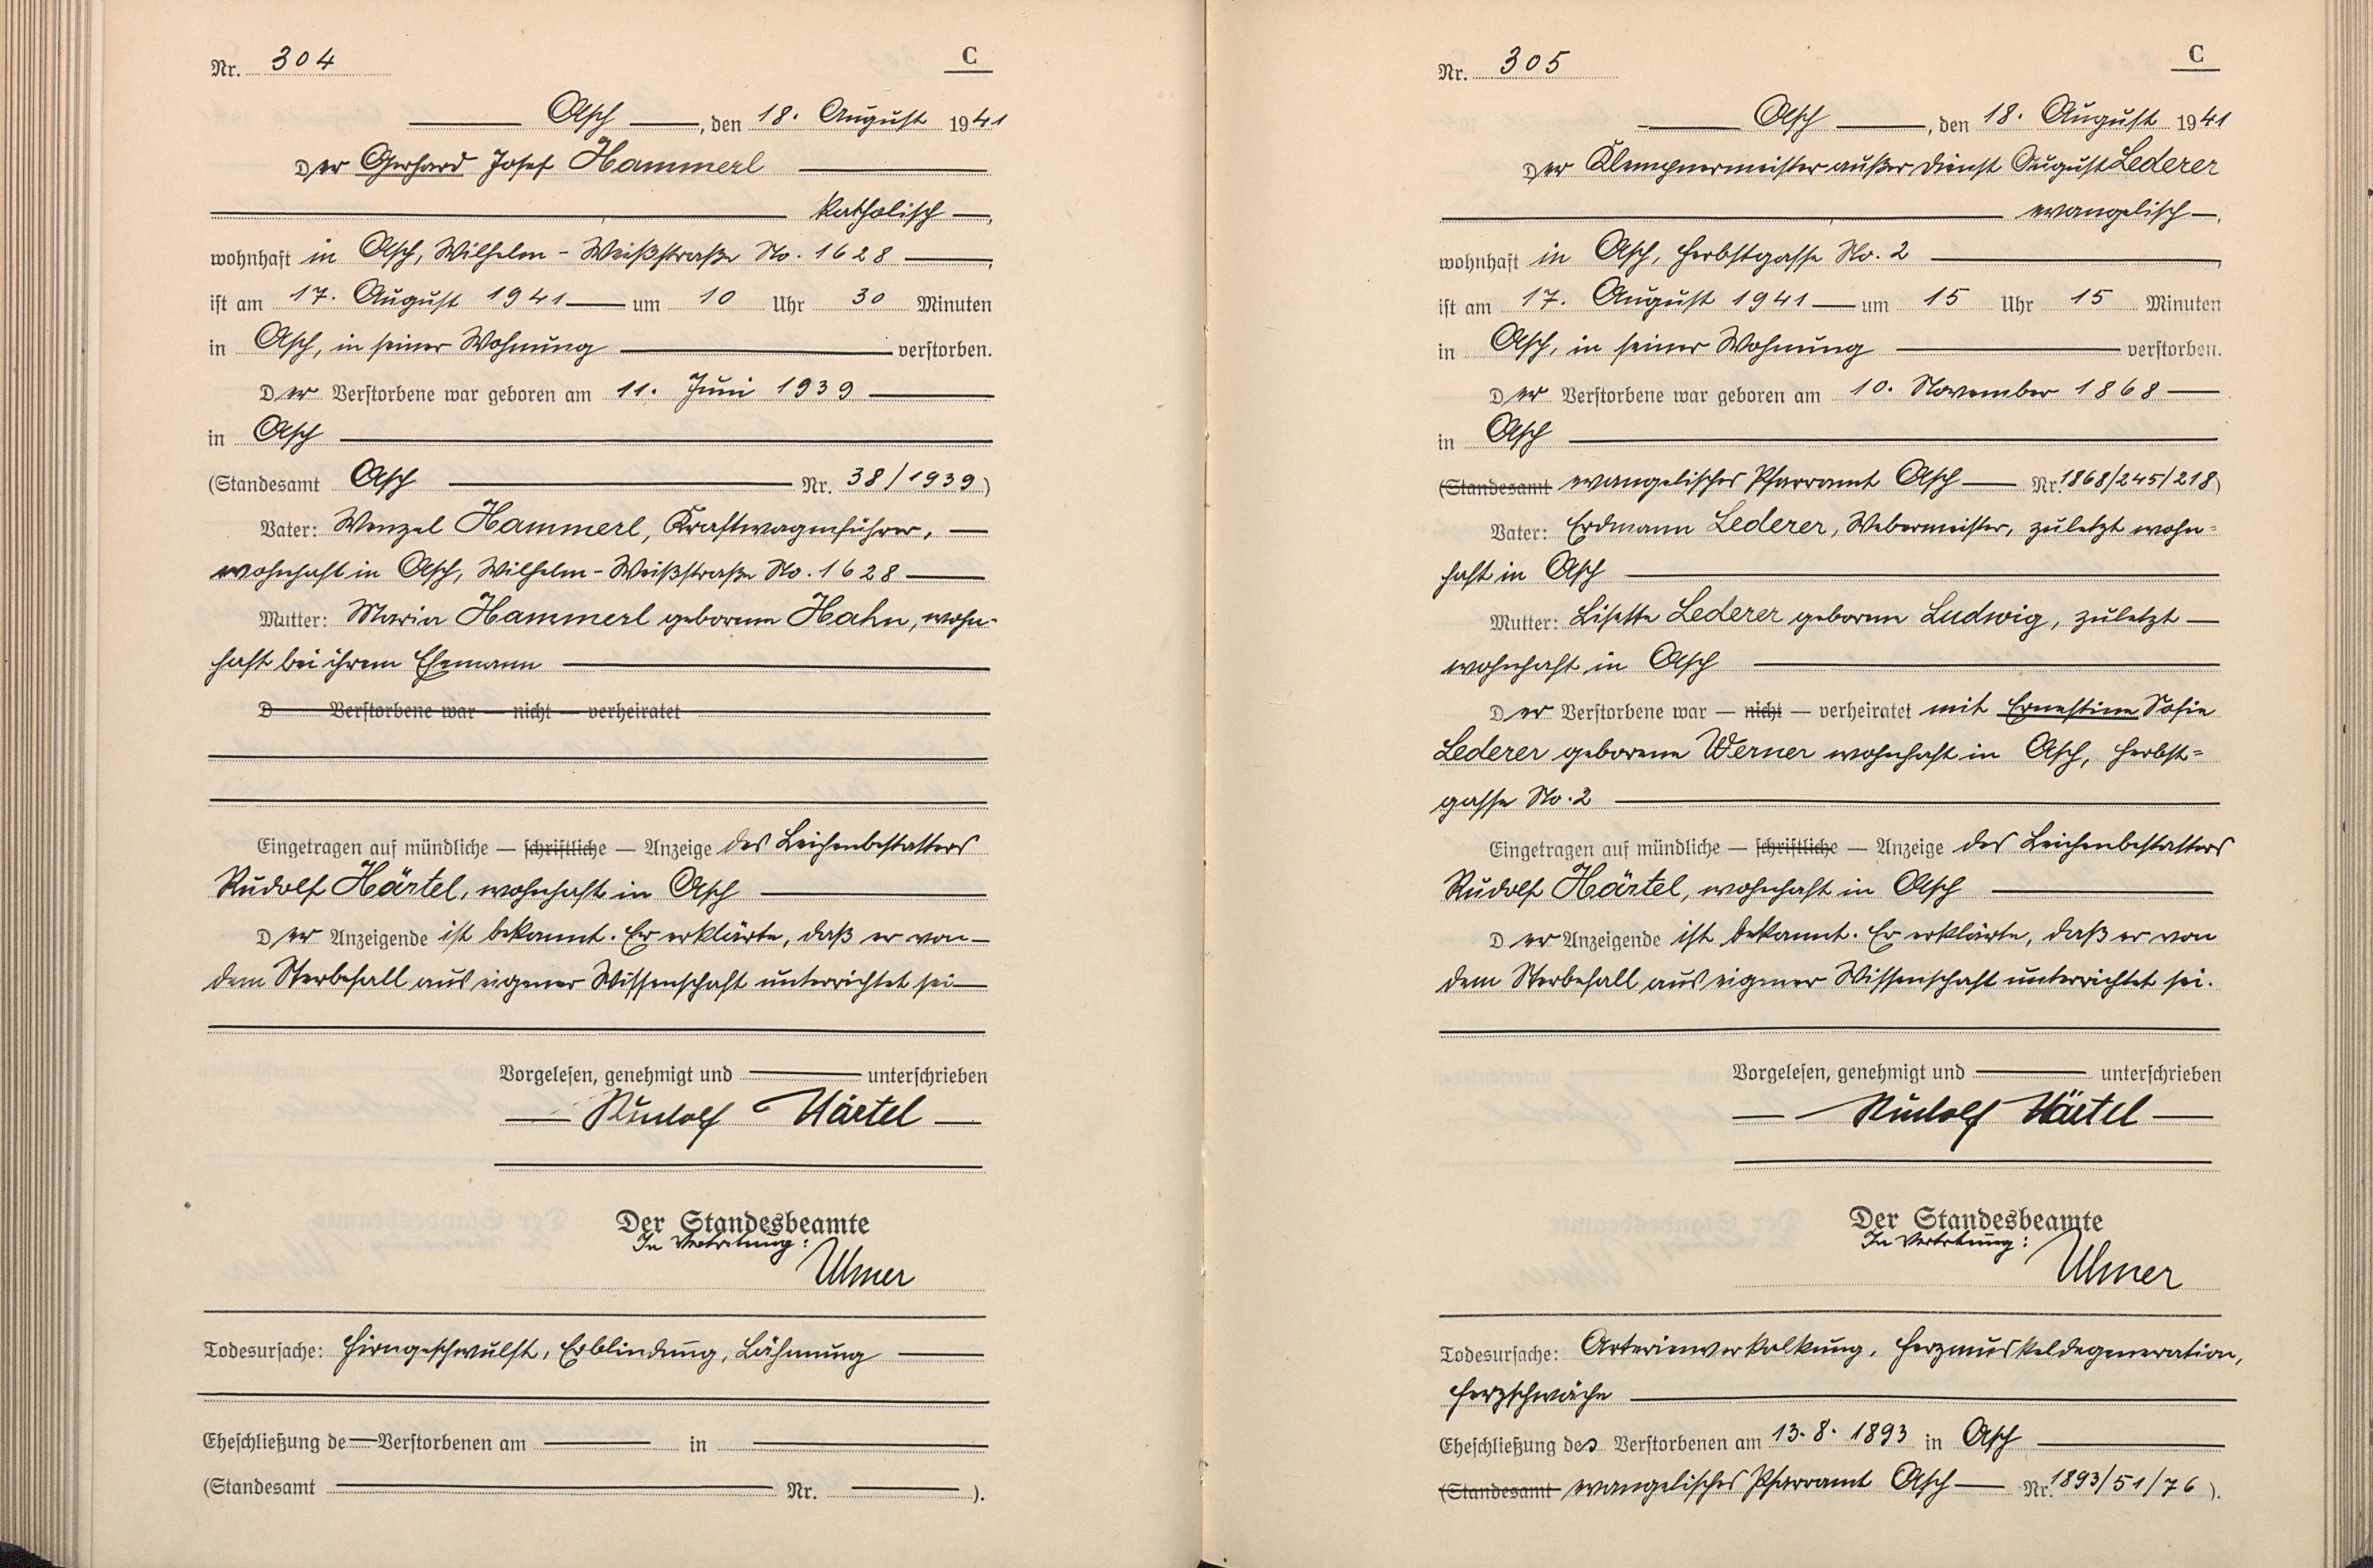 Nr. 304
C
Asch, den 18. August 1941
Der Gerhard Josef Hammerl
katholisch,
wohnhaft in Asch, Wilhelm-Weißstraße No. 1628,
ist am 17. August 1941 um 10 Uhr 30 Minuten
in Asch, in seiner Wohnung verstorben.
Der Verstorbene war geboren am 11. Juni 1939
in Asch
(Standesamt Asch Nr. 38/1939)
Vater: Wenzel Hammerl, Kraftwagenführer,
wohnhaft in Asch, Wilhelm-Weißstraße No. 1628
Mutter: Maria Hammerl geborene Hahn, wohn-
haft bei ihrem Ehemann
D Verstorbene war — nicht — verheiratet
Eingetragen auf mündliche — schriftliche — Anzeige des Leichenbestatters
Rudolf Härtel, wohnhaft in Asch
Der Anzeigende ist bekannt. Er erklärte, daß er von
dem Sterbefall aus eigener Wissenschaft unterrichtet sei
Vorgelesen, genehmigt und unterschrieben
Rudolf Härtel
Der Standesbeamte
In Vertretung:
Ulmer
Todesursache: Hirngeschwulst, Erblindung, Lähmung
Eheschließung de Verstorbenen am in
(Standesamt Nr. ).
Nr. 305
C
Asch, den 18. August 1941
Der Klempnermeister außer Dienst August Lederer
evangelisch,
wohnhaft in Asch, Herbstgasse No. 2,
ist am 17. August 1941 um 15 Uhr 15 Minuten
in Asch, in seiner Wohnung verstorben.
Der Verstorbene war geboren am 10. November 1868
in Asch
(Standesamt evangelisches Pfarramt Asch Nr. 1868/245/218)
Vater: Erdmann Lederer, Webermeister, zuletzt wohn=
haft in Asch
Mutter: Lisette Lederer geborene Ludwig, zuletzt
wohnhaft in Asch
Der Verstorbene war — nicht — verheiratet mit Ernestine Sofie
Lederer geborene Werner wohnhaft in Asch, Herbst=
gasse No. 2
Eingetragen auf mündliche — schriftliche — Anzeige des Leichenbestatters
Rudolf Härtel, wohnhaft in Asch
Der Anzeigende ist bekannt. Er erklärte, daß er von
dem Sterbefall aus eigener Wissenschaft unterrichtet sei.
Vorgelesen, genehmigt und unterschrieben
Rudolf Härtel
Der Standesbeamte
In Vertretung:
Ulmer
Todesursache: Arterienverkalkung, Herzmuskeldegeneration,
Herzschwäche
Eheschließung des Verstorbenen am 13. 8. 1893 in Asch
(Standesamt evangelisches Pfarramt Asch Nr. 1893/51/76).